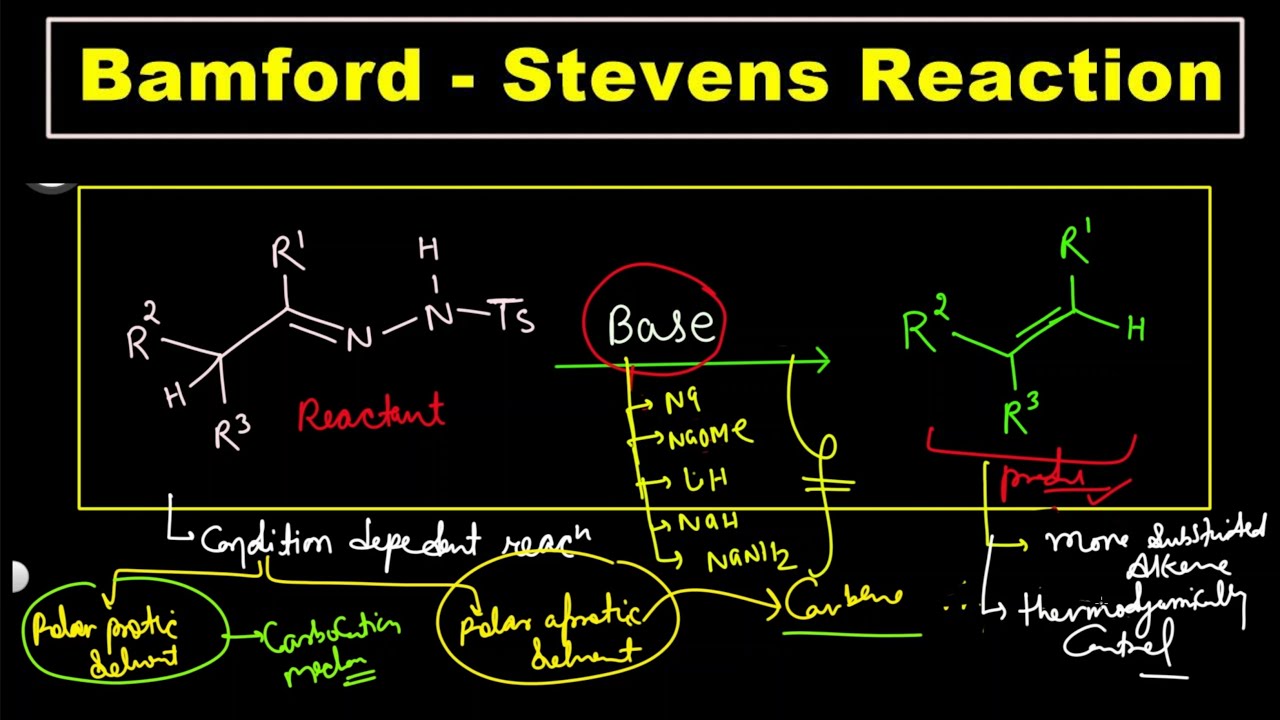 Bamford - Stevens Reaction
R¹
H
R²
N
N
Ts
H
R³
Reactant
Base
Na
NaOMe
LiH
NaH
NaNH₂
R¹
R²
H
R³
Condition dependent reacⁿ
Polar protic
Solvent
Carbocation
Polar aprotic
Solvent
Carbene
more Substituted
Alkene
thermodynamically
Control